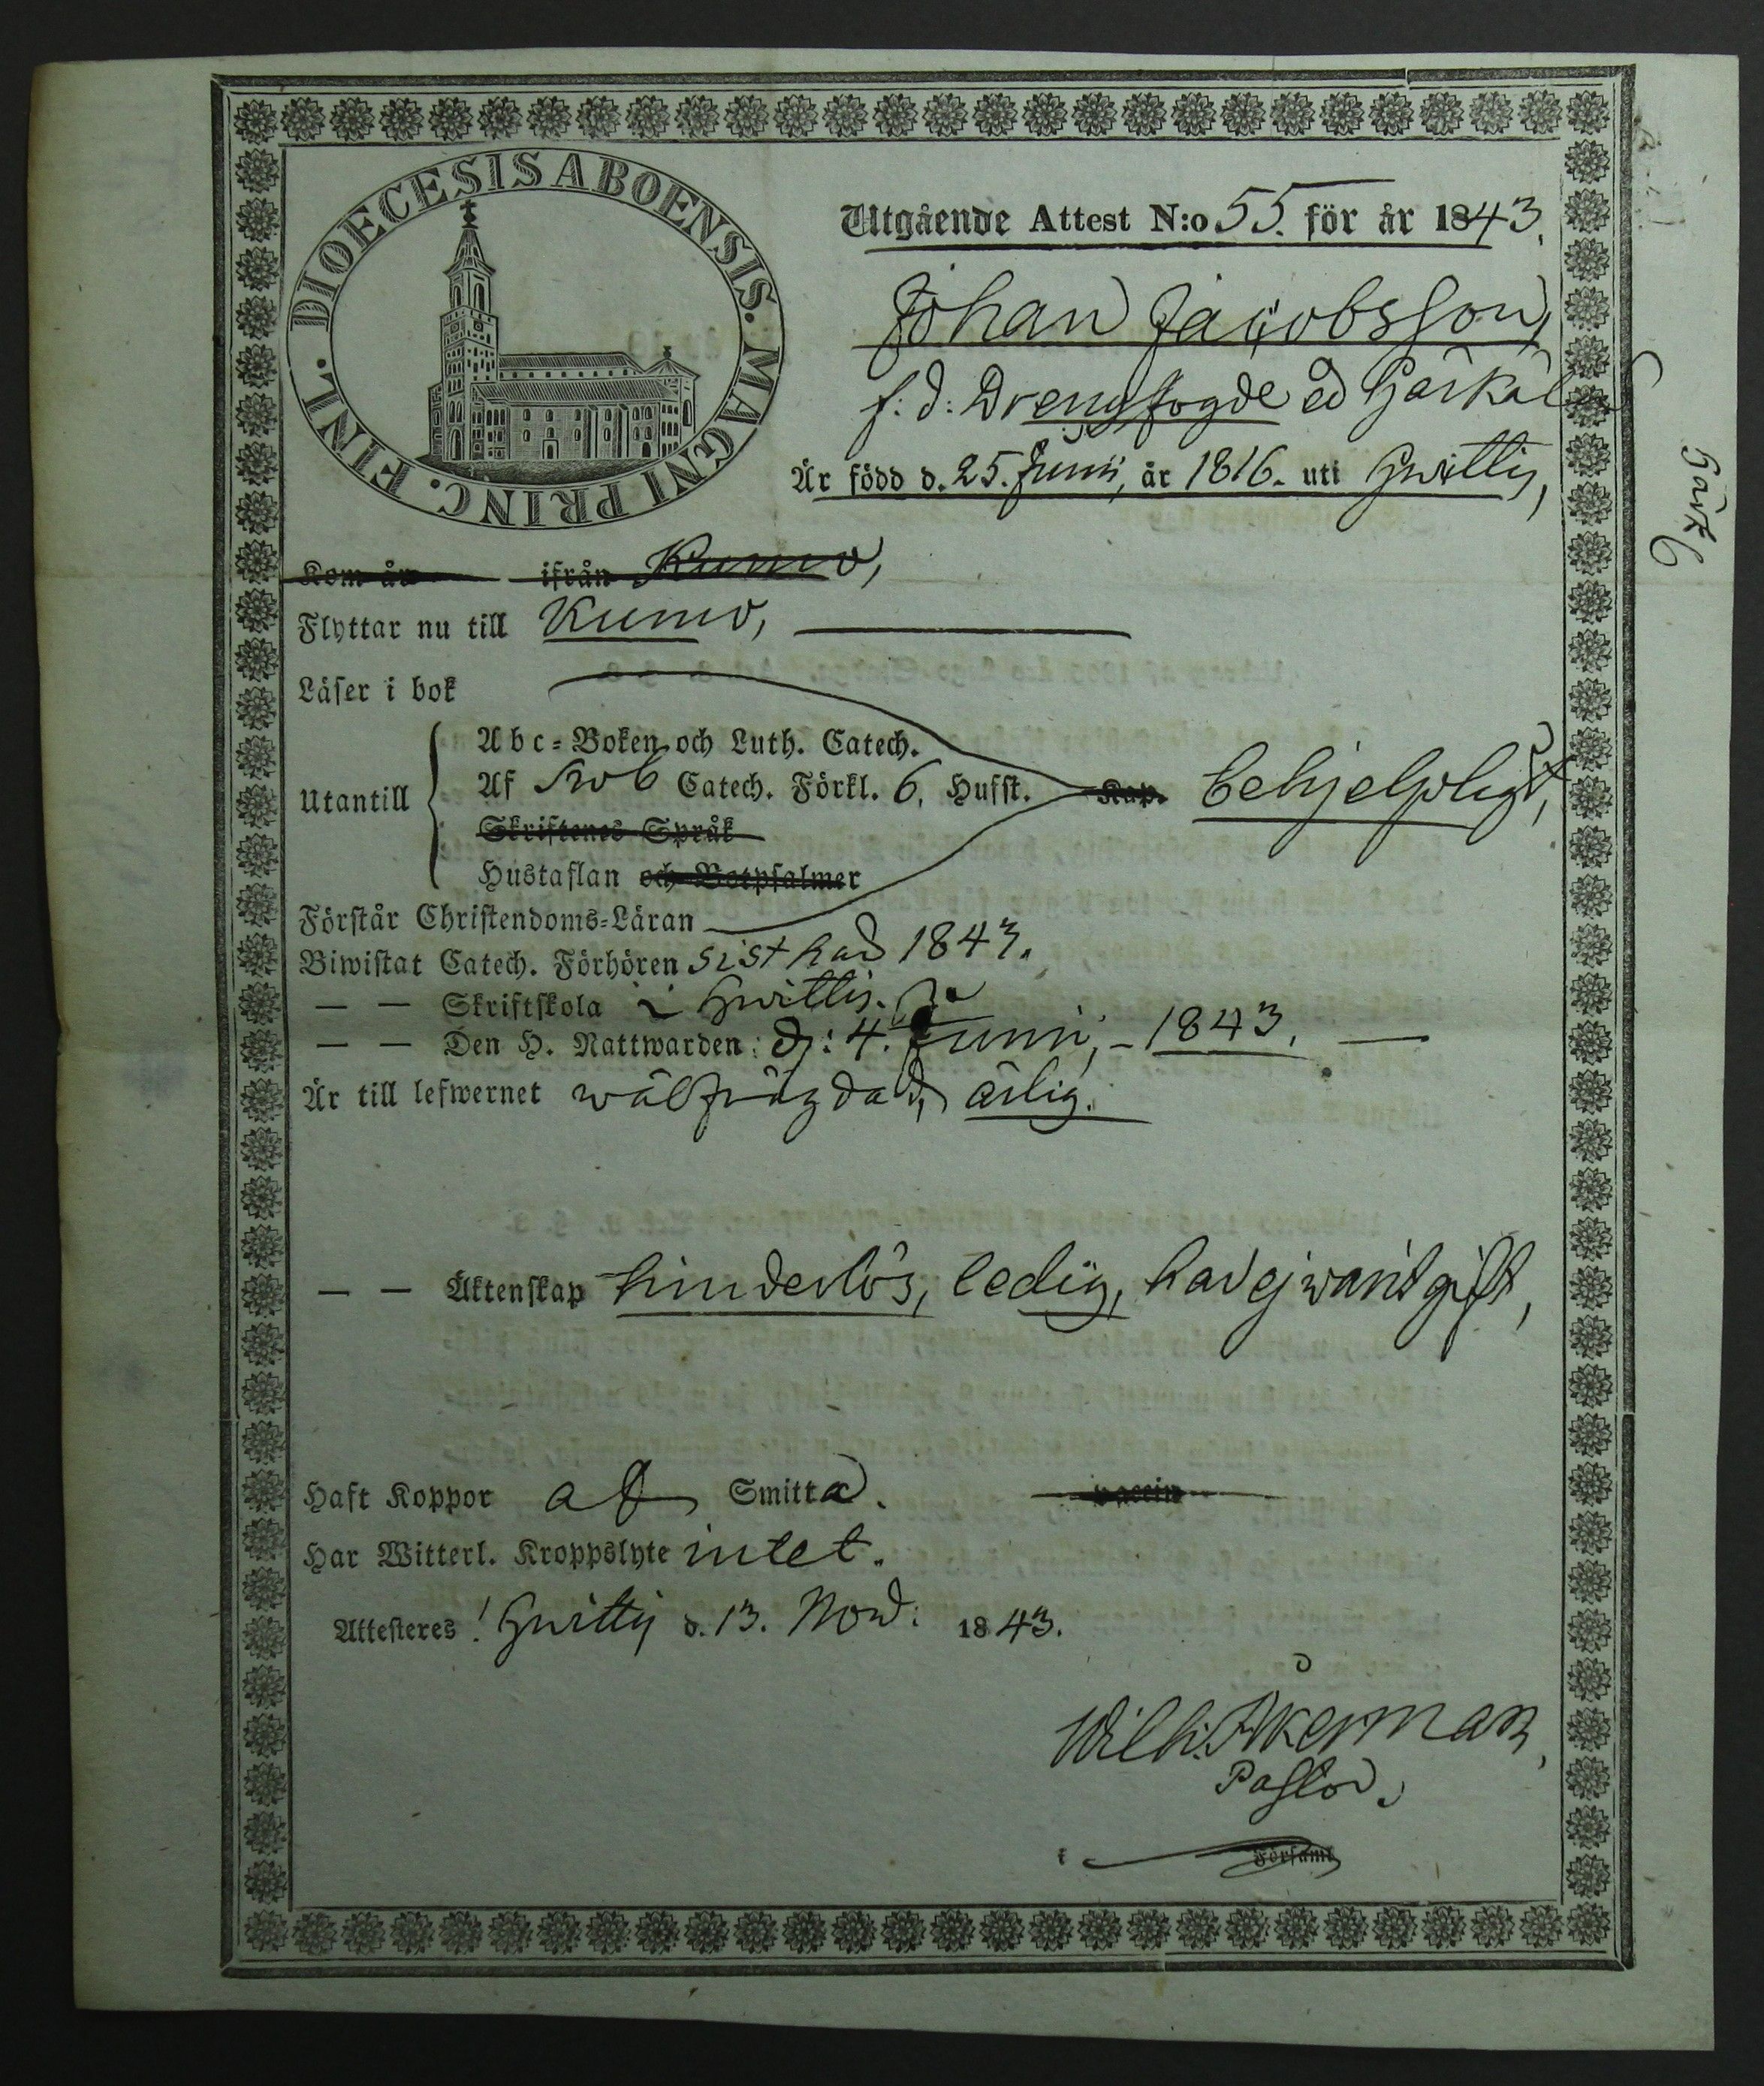 DIOECESIS ABOENSIS. MAGNI PRINC. FINL.
Utgående Attest N:o 55. för år 1843.
Johan Jacobsson,
f: d: Drengfogde
Är född d. 25. Junii, år 1816. uti Hwittis,
Kom år ifrån Kumo,
Flyttar nu till Kumo,
Läser i bok
Abc-Boken och Luth. Catech.
Utantill Af Swb Catech. Förkl. 6. Husst. Kap. behjelpligt,
Skriftenes Språk
Hustaflan och Botpsalmer
Förstår Christendoms-Läran
Biwistat Catech. Förhören sist har 1843.
— — Skriftskola i Hwittis.
— — Den H. Nattwarden: d: 4. Junii, - 1843. —
Är till lefwernet wälfrägdad, ärlig.
— — Äktenskap hinderlös, ledig, har ej warit gift,
Haft Koppor af Smitta. vaccin
Har Witterl. Kroppslyte intet.
Attesteres! Hwittis d. 13. Novr: 1843.
Wilh: Åkerman,
Pastor.
i Församl.